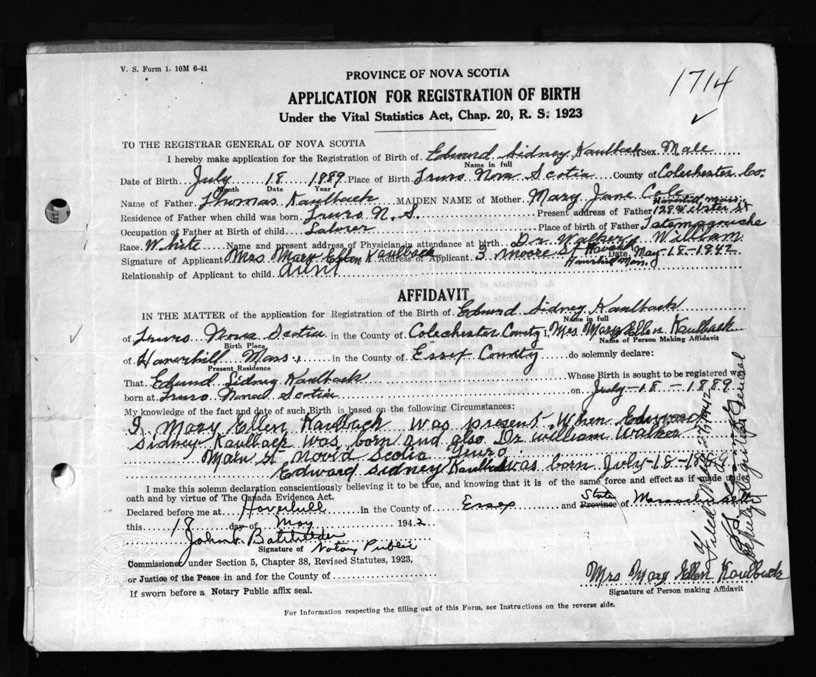 V. S. Form 1. 10M 6-41
PROVINCE OF NOVA SCOTIA
1714
APPLICATION FOR REGISTRATION OF BIRTH
Under the Vital Statistics Act, Chap. 20, R. S. 1923
TO THE REGISTRAR GENERAL OF NOVA SCOTIA
I hereby make application for the Registration of Birth of Edward Sidney Kaulback Sex Male
Name in full
Date of Birth July 18 1889 Place of Birth Truro Nova Scotia County of Colechester Co.
Month Date Year
Name of Father Thomas Kaulback MAIDEN NAME of Mother Mary Jane Cole
Residence of Father when child was born Truro N. S. Present address of Father
Occupation of Father at Birth of child Laborer Place of birth of Father
Race White Name and present address of Physician in attendance at birth Dr. Walker William
Signature of Applicant Mrs Mary Ellen Kaulback Address of Applicant 3 Moore St Date May-18-1942
Haverhill Mass.
Relationship of Applicant to child aunt
AFFIDAVIT
IN THE MATTER of the application for Registration of the Birth of Edward Sidney Kaulback
Name in full
of Truro Nova Scotia in the County of Colechester County, Mrs Mary Ellen Kaulback
Birth Place Name of Person Making Affidavit
of Haverhill Mass., in the County of Essex County do solemnly declare:
Present Residence
That Edward Sidney Kaulback Whose Birth is sought to be registered was
born at Truro Nova Scotia on July-18-1889
My knowledge of the fact and date of such Birth is based on the following Circumstances:
I Mary Ellen Kaulback was present when Edward
Sidney Kaulback was born and also Dr William Walker
Main St Novia Scotia Truro.
Edward Sidney Kaulback was born July-18-1889
I make this solemn declaration conscientiously believing it to be true, and knowing that it is of the same force and effect as if made under
oath and by virtue of The Canada Evidence Act.
Declared before me at Haverhill in the County of Essex and State Province of Massachusetts
this 18 day of May 1942
John Batchelder
Signature of Notary Public
Commissioner under Section 5, Chapter 38, Revised Statutes, 1923,
or Justice of the Peace in and for the County of
Mrs Mary Ellen Kaulback
Signature of Person making Affidavit
If sworn before a Notary Public affix seal.
For Information respecting the filling out of this Form, see Instructions on the reverse side.
Filed
Deputy Registrar General